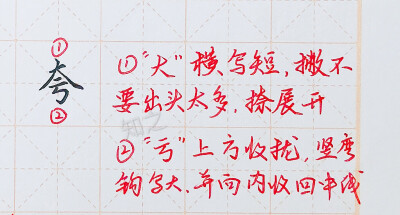 ①
夸
②
①“大”横写短,撇不
要出头太多,捺展开
②“亏”上方收拢,竖弯
钩写大,并向内收回中线
知之